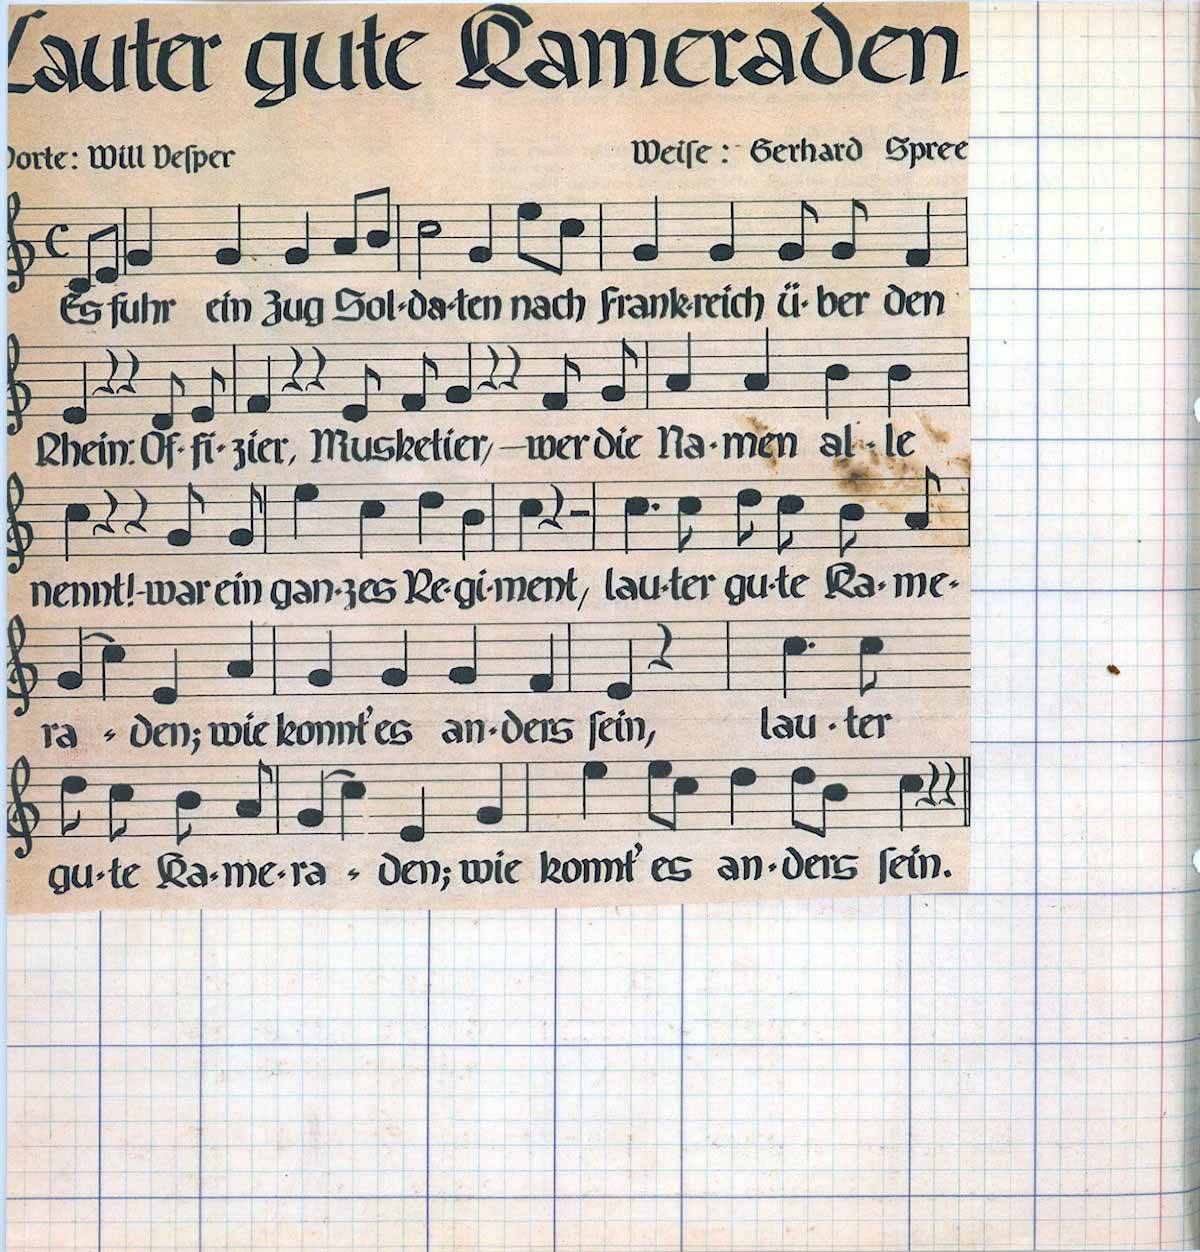 Lauter gute Kameraden
Worte: Will Veſper
Weiſe: Gerhard Spree
Es fuhr ein Zug Sol-da-ten nach Frank-reich ü-ber den
Rhein: Of-fi-zier, Musketier,—wer die Na-men al-le
nennt!-war ein gan-zes Re-gi-ment, lau-ter gu-te Ka-me-
ra - den; wie konnt'es an-ders ſein, lau-ter
gu-te Ka-me-ra - den; wie konnt' es an-ders ſein.